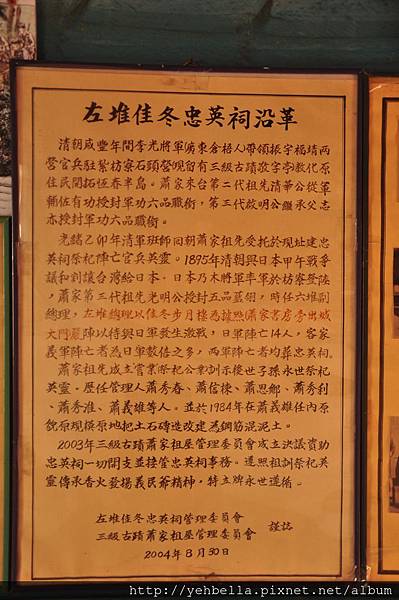 左堆佳冬忠英祠沿革
清朝咸豐年間李光將軍廣東倉梧人帶領振字福靖兩
營官兵駐紮枋寮石頭營現留有三級古蹟敬字亭教化原
住民開拓恆春半島。蕭家來台第三代祖先清華公從軍
輔佐有功授封軍功六品職銜,第三代啟明公繼承父志
亦授封軍功六品職銜。
光緒乙卯年清軍班師回朝蕭家祖先受托於現址建忠
英祠祭祀陣亡官兵英靈。1895年清朝與日本甲午戰爭
議和割讓台灣給日本。日本乃木將軍率軍於枋寮登陸
,蕭家第三代祖先光明公授封五品藍翎,時任六堆副
總理,左堆總理以佳冬步月樓為據點(蕭家書房旁出城
大門嚴陣以待與日軍發生激戰,日軍陣亡14人,客家
義軍陣亡者為日軍數倍之多,兩軍陣亡者均葬忠英祠。
蕭家祖先成立嘗業祭祀公業訓示後世子孫永世祭祀
英靈。歷任管理人蕭秀春、蕭信棟、蕭恩鄉、蕭秀利
、蕭秀淮、蕭義雄等人。並於1984年在蕭義雄任內原
貌原規模原地把土石磚造改建為鋼筋混泥土。
2003年三級古蹟蕭家祖屋管理委員會成立決議資助
忠英祠一切開支並接管忠英祠事務。遵照祖訓祭祀英
靈傳承香火發揚義民爺精神,特立牌永世遵循。
左堆佳冬忠英祠管理委員會
三級古蹟蕭家祖屋管理委員會 謹誌
2004年8月30日
http://yehbella.pixnet.net/album